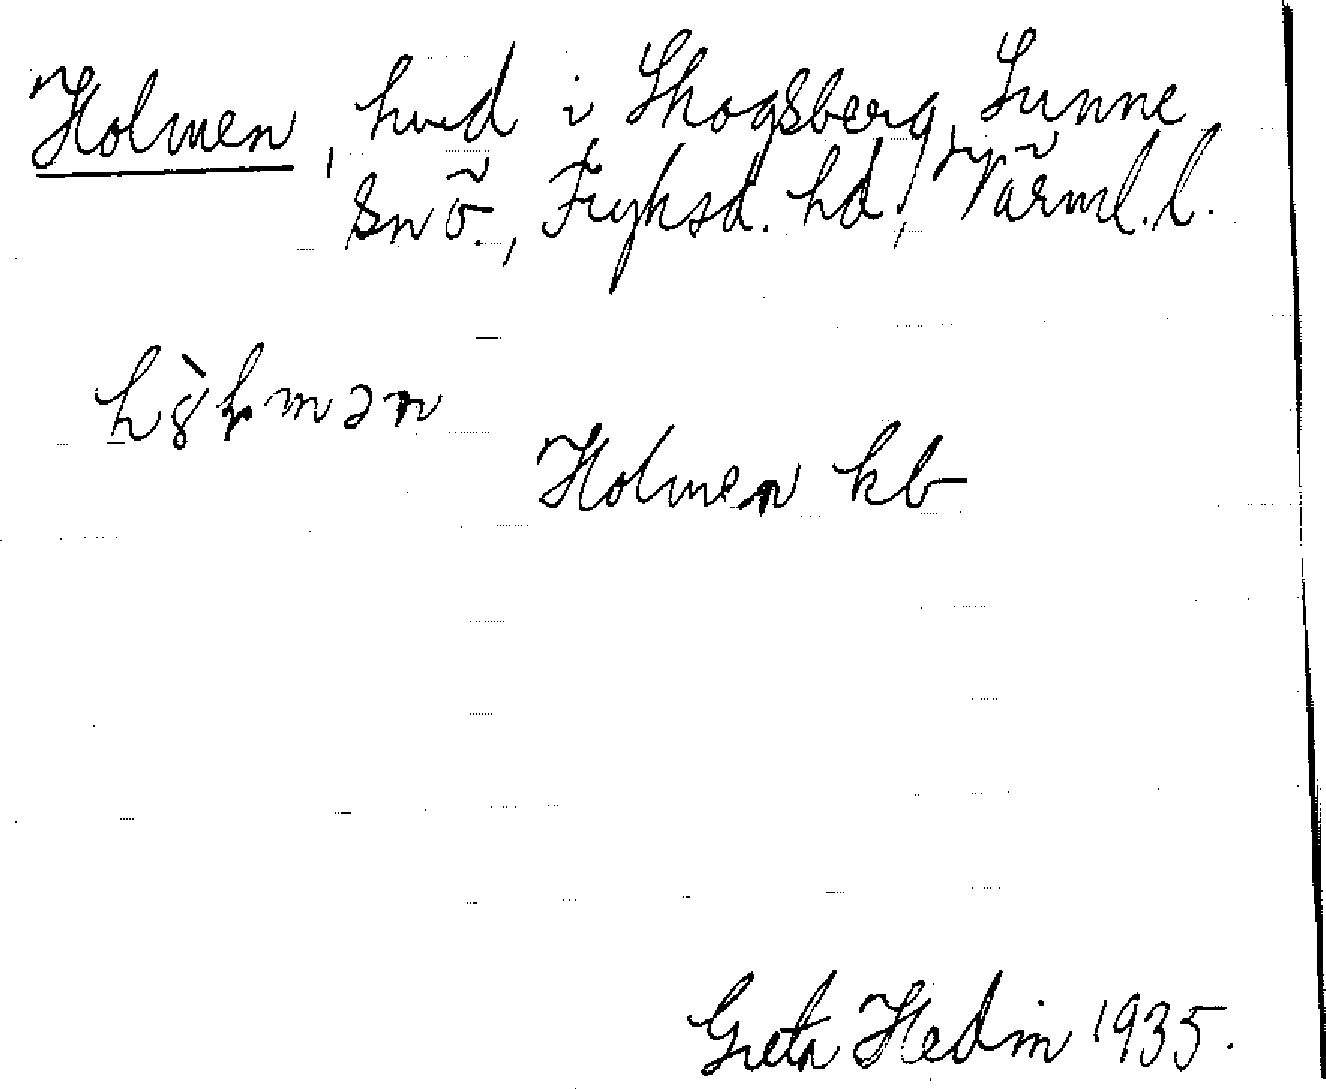 Holmen, hmd i Skogsberg, Sunne
sn ö., Fryksd. hd, Värml. l.
Holmen kb
Greta Hedin 1935.